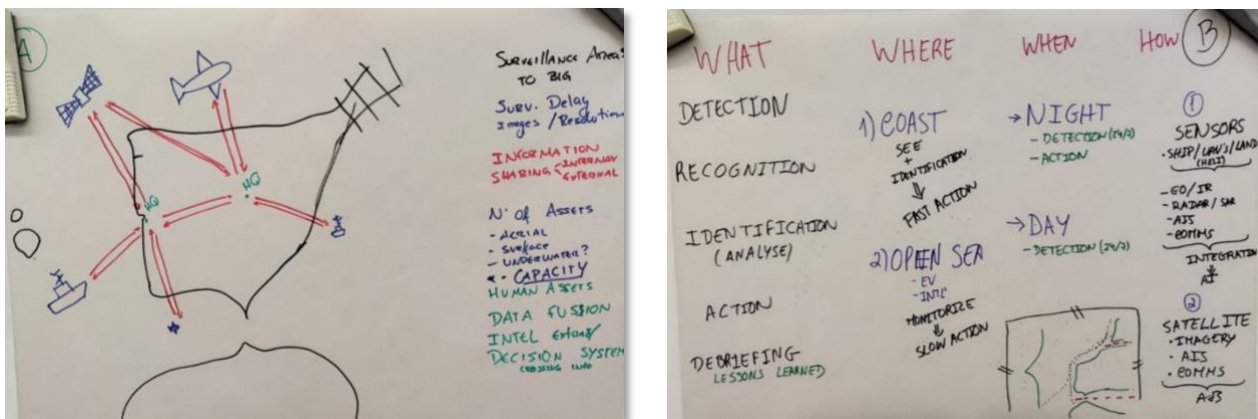 A
HQ
HQ
SURVEILLANCE AREAS
TO BIG
SURV. Delay
Images / Resolution
INFORMATION
SHARING
INTERNAL
EXTERNAL
Nº of ASSETS
- AERIAL
- SURFACE
- UNDERWATER?
CAPACITY
HUMAN ASSETS
DATA FUSION
INTEL
DECISION SYSTEM
INFO
WHAT
DETECTION
RECOGNITION
IDENTIFICATION
(ANALYSE)
ACTION
DEBRIEFING
LESSONS LEARNED)
WHERE
1) COAST
SEE
+
IDENTIFICATION
FAST ACTION
2) OPEN SEA
- EV
MONITORIZE
SLOW ACTION
WHEN
→ NIGHT
- DETECTION (24/7)
- ACTION
→ DAY
- DETECTION (24/7)
HOW
B
1
SENSORS
• SHIP/UAV's/LAND
(HELI)
- EO/IR
- RADAR/SAR
- AIS
- COMMS
INTEGRATION
AI
2
SATELLITE
• IMAGERY
• AIS
• COMMS